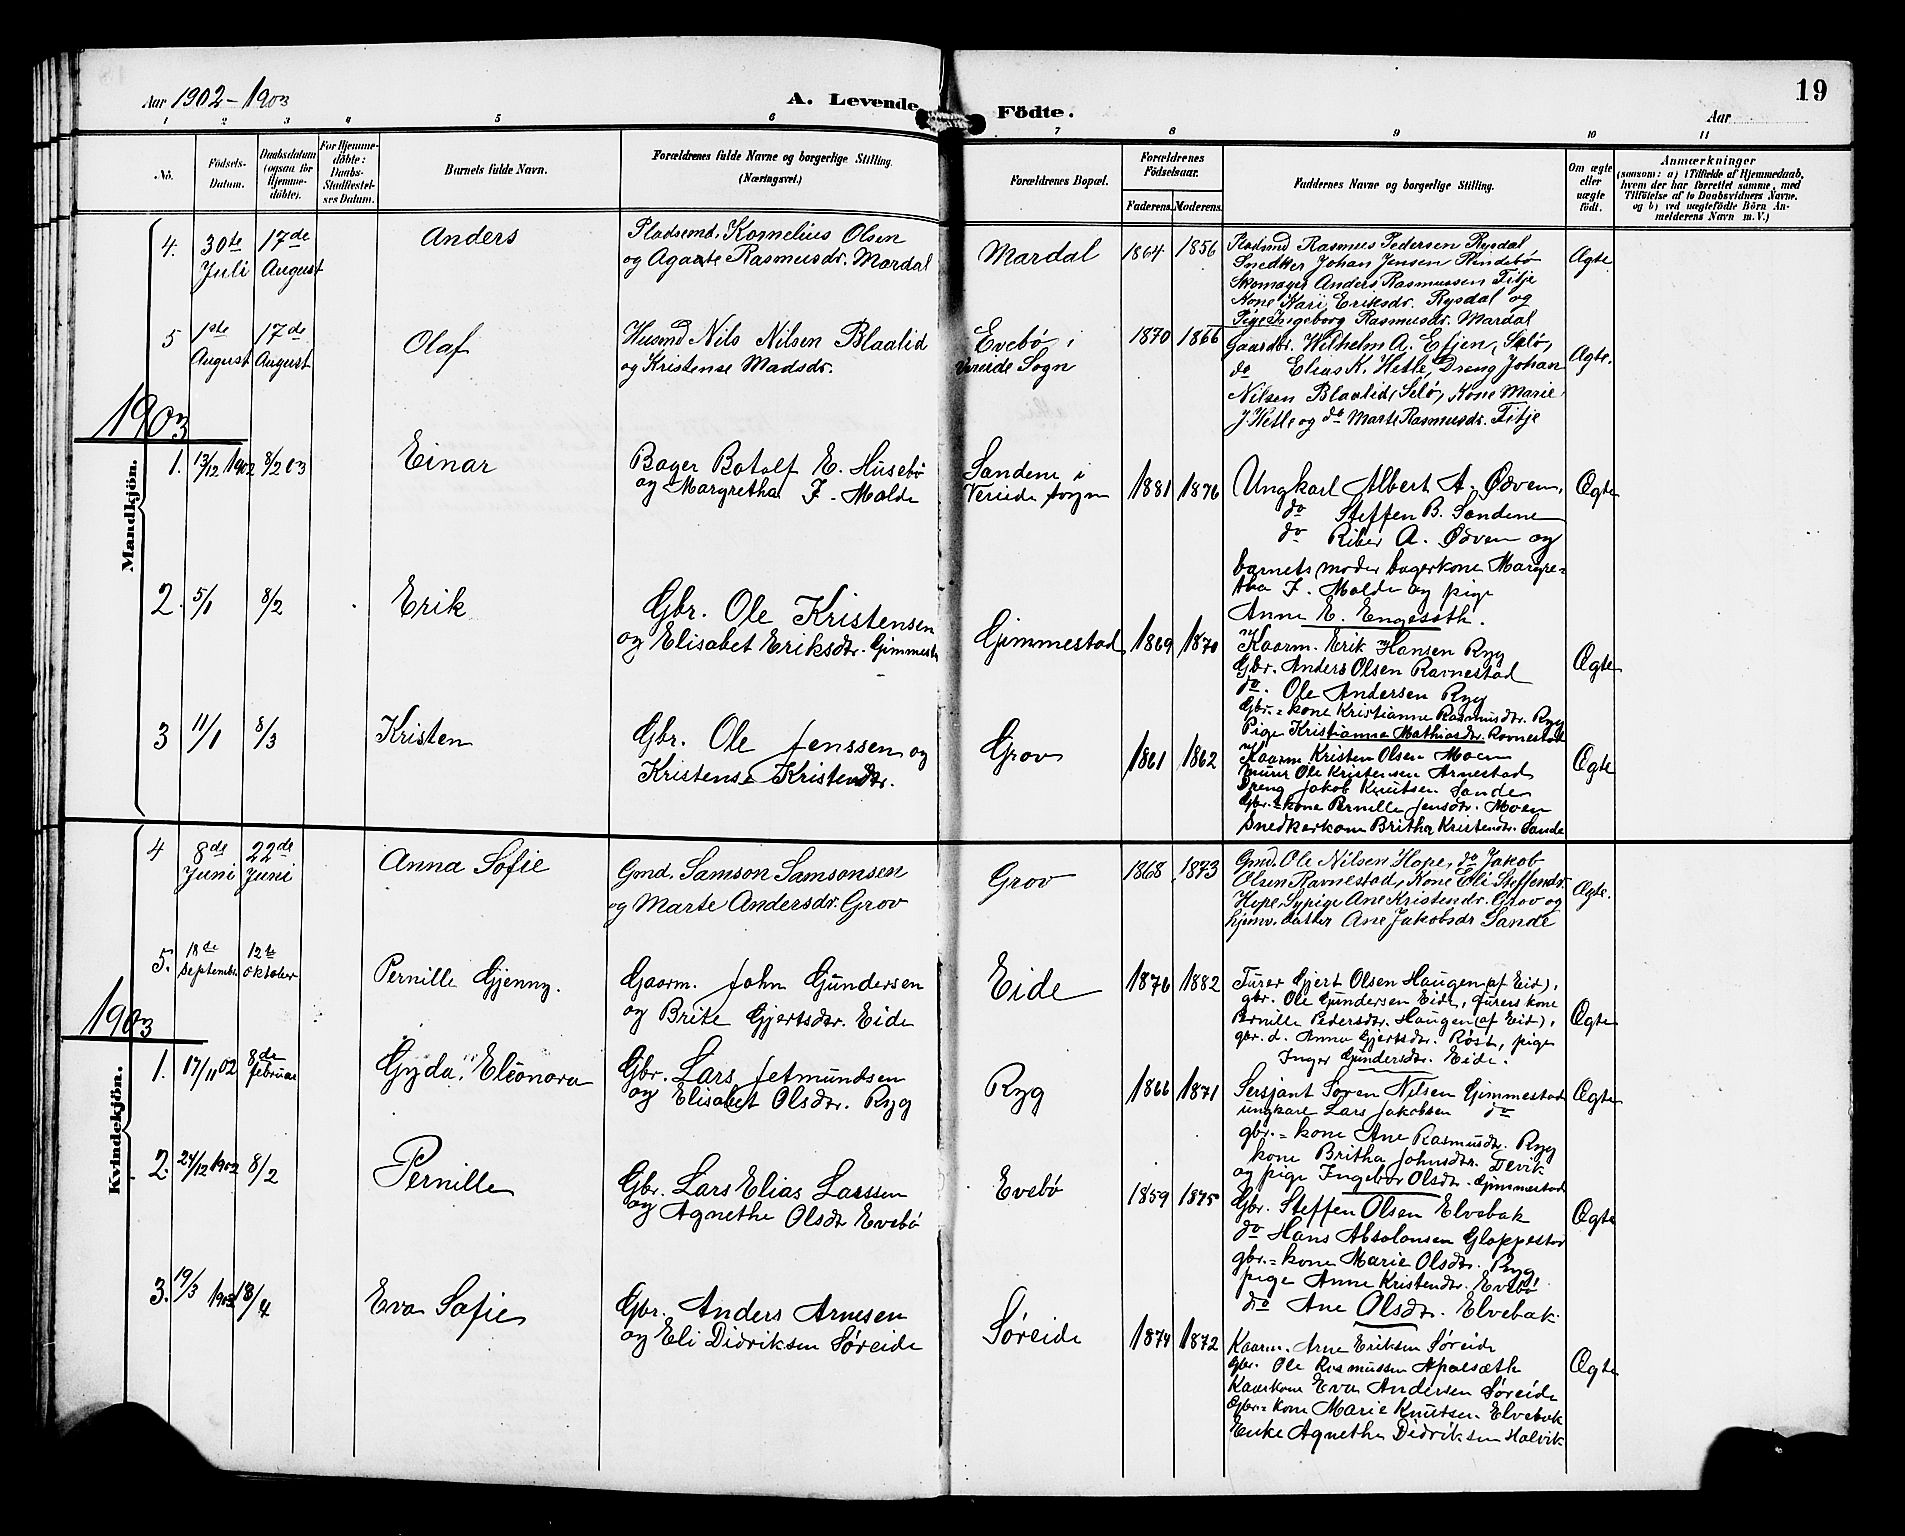 19
Aar 1902-1903
A. Levende Födte.
Aar
1 2 3 4 5 6 7 8 9 10 11
No.
Födsels-Datum.
Daabsdatum (ogsaa for Hjemmedöbte).
For Hjemmedöbte: Daabs-Stadfestelses Datum.
Barnets fulde Navn.
Forældrenes fulde Navne og borgerlige Stilling.
(Næringsvei.)
Forældrenes Bopæl.
Forældrenes Födselsaar.
Faderens. Moderens.
Faddernes Navne og borgerlige Stilling.
Om ægte eller uægte födt.
Anmærkninger
(saasom: a) i Tilfælde af Hjemmedaab,
hvem der har forrettet samme, med
Tilföielse af to Daabsvidners Navne.
og b) ved uægtefödte Börn An-
melderens Navn m. V.)
Mandkjön.
4. 30te Juli 17de August
Anders
Pladsmd. Kornelius Olsen
og Agaate Rasmusdr. Mardal
Mardal
1864 1856
Pladsmd Rasmus Pedersen Rysdal
Snedker Johan Jensen Rindebø
Skomager Anders Rasmussen Fitje
Kone Kari Eriksdr. Rysdal og
Pige Ingeborg Rasmusdr. Mardal
Ægte
5 1ste August 17de August
Olaf
Husmd Nils Nilsen Blaalid
og Kristense Madsdr.
Evebø i
Vereide Sogn
1870 1866
Gaardbr. Wilhelm A. Efjen, Selø,
do Elias K. Hetle, Dreng Johan
Nilsen Blaalid, Selø, Kone Marie
J. Hetle og do Marte Rasmusdr. Fitje
Ægte.
1903
1. 13/12 1902 8/2 03
Einar
Bager Botolf E. Husebø
og Margretha F. Molde
Sandene i
Vereide sogn
1881 1876
Ungkarl Albert A. Ødven,
do Steffen B. Sandene
do Riber A. Ødven og
barnets moder bagerkone Margre=
tha F. Molde og pige
Anne E. Engeseth.
Ægte
2. 5/1 8/2
Erik
Gbr. Ole Kristensen
og Elisabet Eriksdtr. Gimmestad
Gimmestad
1869 1870
Kaarm. Erik Hansen Ryg
Gbr. Anders Olsen Ravnestad
do. Ole Andersen Ryg
Gbr.=kone Kristianne Rasmusdtr. Ryg
Pige Kristianne Mathiasdtr. Ravnestad
Ægte
3 11/1 8/3
Kristen
Gbr. Ole Jenssen og
Kristense Kristendtr.
Grov
1861 1862
Kaarm Kristen Olsen Moen
Murer Ole Kristensen Arnestad
Dreng Jakob Knutsen Sande
Gbr.=kone Pernille Jensdtr. Moen
Snedkerkone Britha Kristendtr. Sande
Ægte
Kvindekjön.
4 8de Juni 22de Juni
Anna Sofie
Gmd. Samson Samsonsen
og Marte Andersdr. Grov
Grov
1868 1873
Gmd. Ole Nilsen Hope, do Jakob
Olsen Ravnestad, Kone Eli Steffendr.
Hope, Sypige Ane Kristendr. Grov og
hjemv. datter Ane Jakobsdr Sande
Ægte.
5. 18de September 12te oktober
Pernille Gjenny.
Gaarm. John Gundersen
og Brite Gjertsdtr. Eide
Eide
1876 1882
Furer Gjert Olsen Haugen (af Eid),
gbr. Ole Gundersen Eide, furers kone
Pernille Pedersdtr. Haugen (af Eid),
gbr. d. Anna Gjertsdtr. Røst, pige
Inger Gundersdtr. Eide.
Ægte
1903
1. 17/11 02 8de februar
Gyda, Eleonora
Gbr. Lars Jetmundsen
og Elisabet Olsdtr. Ryg
Ryg
1866 1871
Sersjant Søren Nilsen Gimmestad
ungkarl Lars Jakobsen do
gbr.=kone Ane Rasmusdtr. Ryg
kone Britha Johnsdtr. Devik
og pige Ingebor Olsdtr. Gimmestad
Ægte
2. 24/12 1902 8/2
Pernille
Gbr. Lars Elias Larssen
og Agnethe Olsdtr Evebø
Evebø
1859 1875
Gbr. Steffen Olsen Elvebak
do Hans Absolonsen Gloppestad
gbr.=kone Marie Olsdtr. Ryg
pige Anne Kristendtr. Evebø
do Ane Olsdtr. Elvebak.
Ægte
3. 19/3 1903 13/4
Eva Sofie
Gbr. Anders Arnesen
og Eli Didriksen Søreide
Søreide
1874 1872
Kaarm. Arne Eriksen Søreide
Gbr. Ole Rasmussen Apalsæth
Kaarkone Eva Andersen Søreide
Gbr.=kone Marie Knutsen Elvebak
Enke Agnethe Didriksen Holvik
Ægte